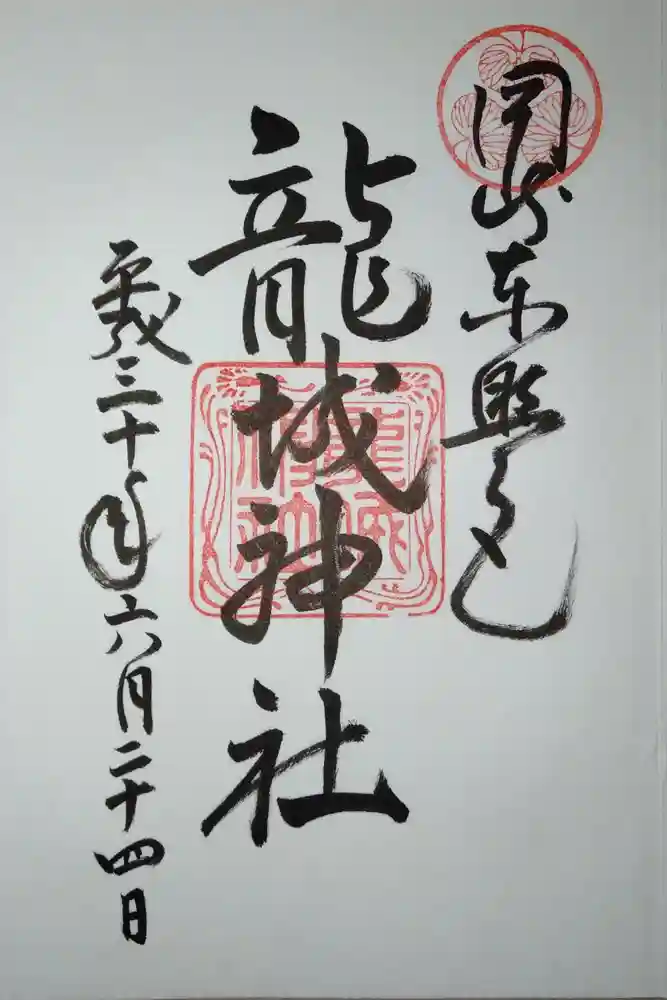 岡崎東照宮
龍城神社
平成三十年六月二十四日
龍城神社